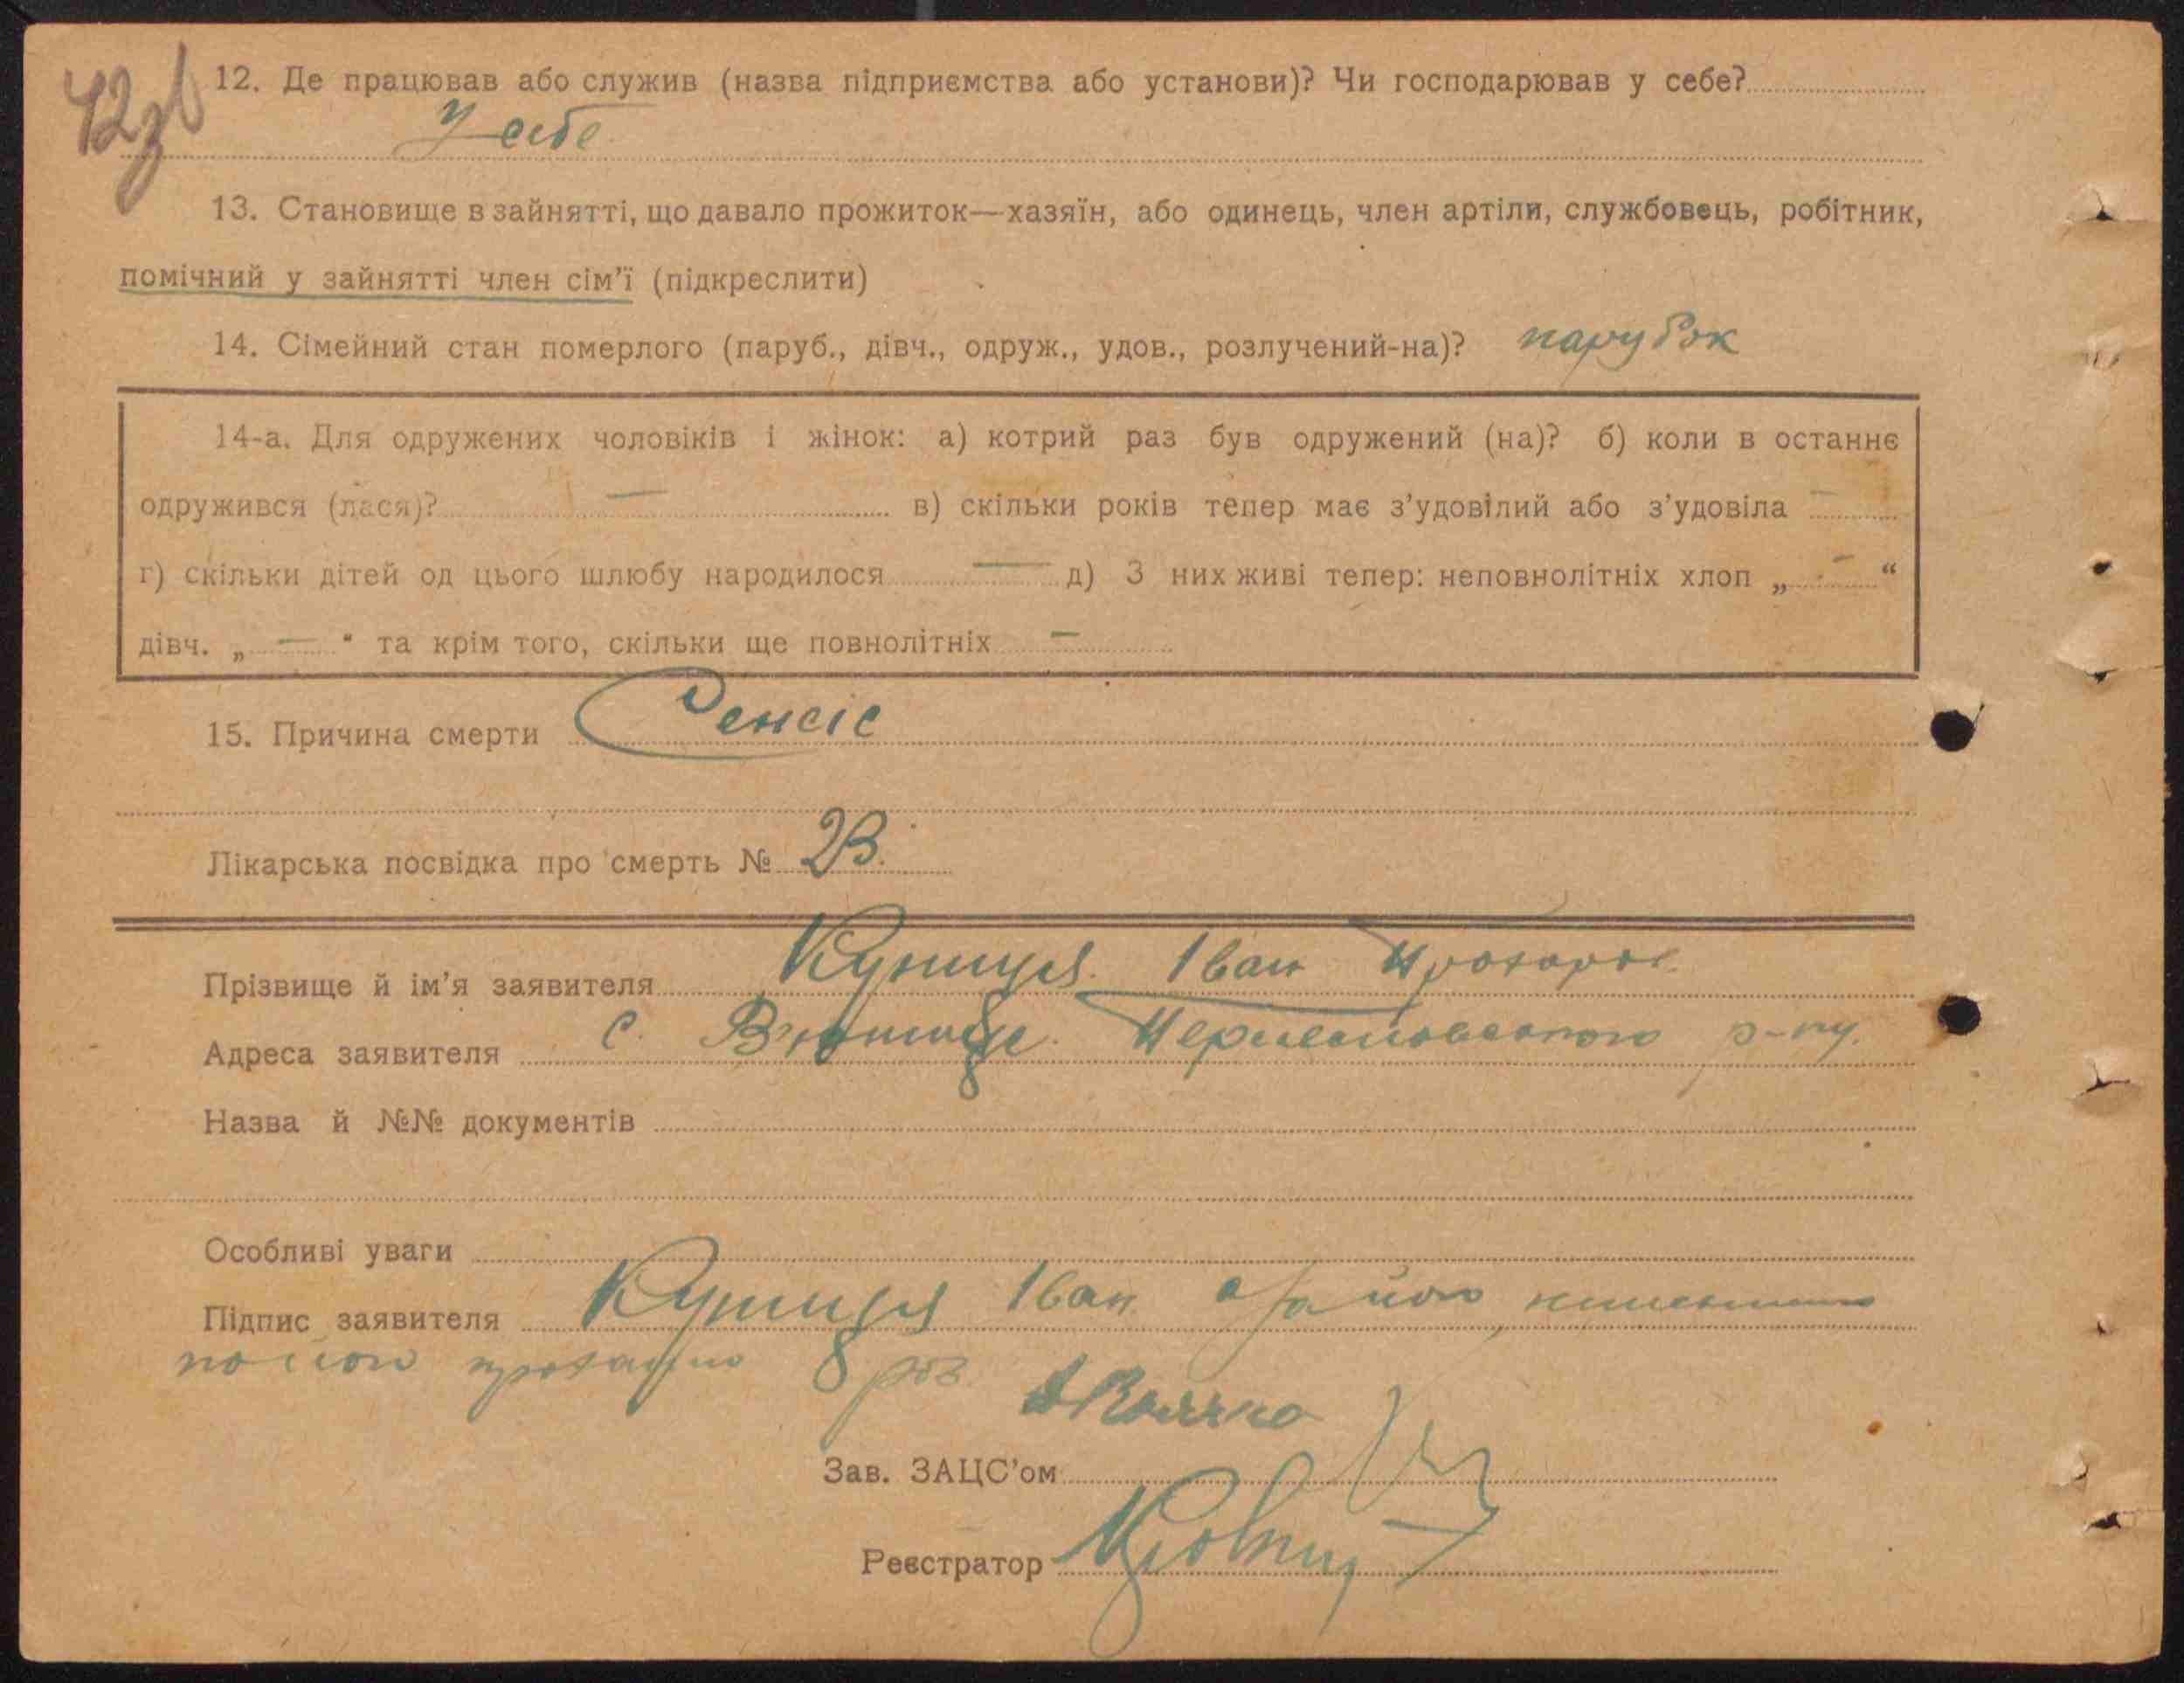 42зв
12. Де працював або служив (назва підприємства або установи)? Чи господарював у себе?
У себе
13. Становище в зайнятті, що давало прожиток—хазяїн, або одинець, член артіли, службовець, робітник,
помічний у зайнятті член сім'ї (підкреслити)
14. Сімейний стан померлого (паруб., дівч., одруж., удов., розлучений-на)? парубок
14-а. Для одружених чоловіків і жінок: а) котрий раз був одружений (на)? б) коли в останнє
одружився (лася)? — в) скільки років тепер має з'удовілий або з'удовіла —
г) скільки дітей од цього шлюбу народилося — д) З них живі тепер: неповнолітніх хлоп „ — “
дівч. „ — “ та крім того, скільки ще повнолітніх —
15. Причина смерти Сепсіс
Лікарська посвідка про смерть № 23.
Прізвище й ім'я заявителя Куниця Іван Прохоров.
Адреса заявителя с. р-ну.
Назва й №№ документів
Особливі уваги
Підпис заявителя Куниця Іван а за його
по його проханню
Зав. ЗАЦС'ом
Реєстратор